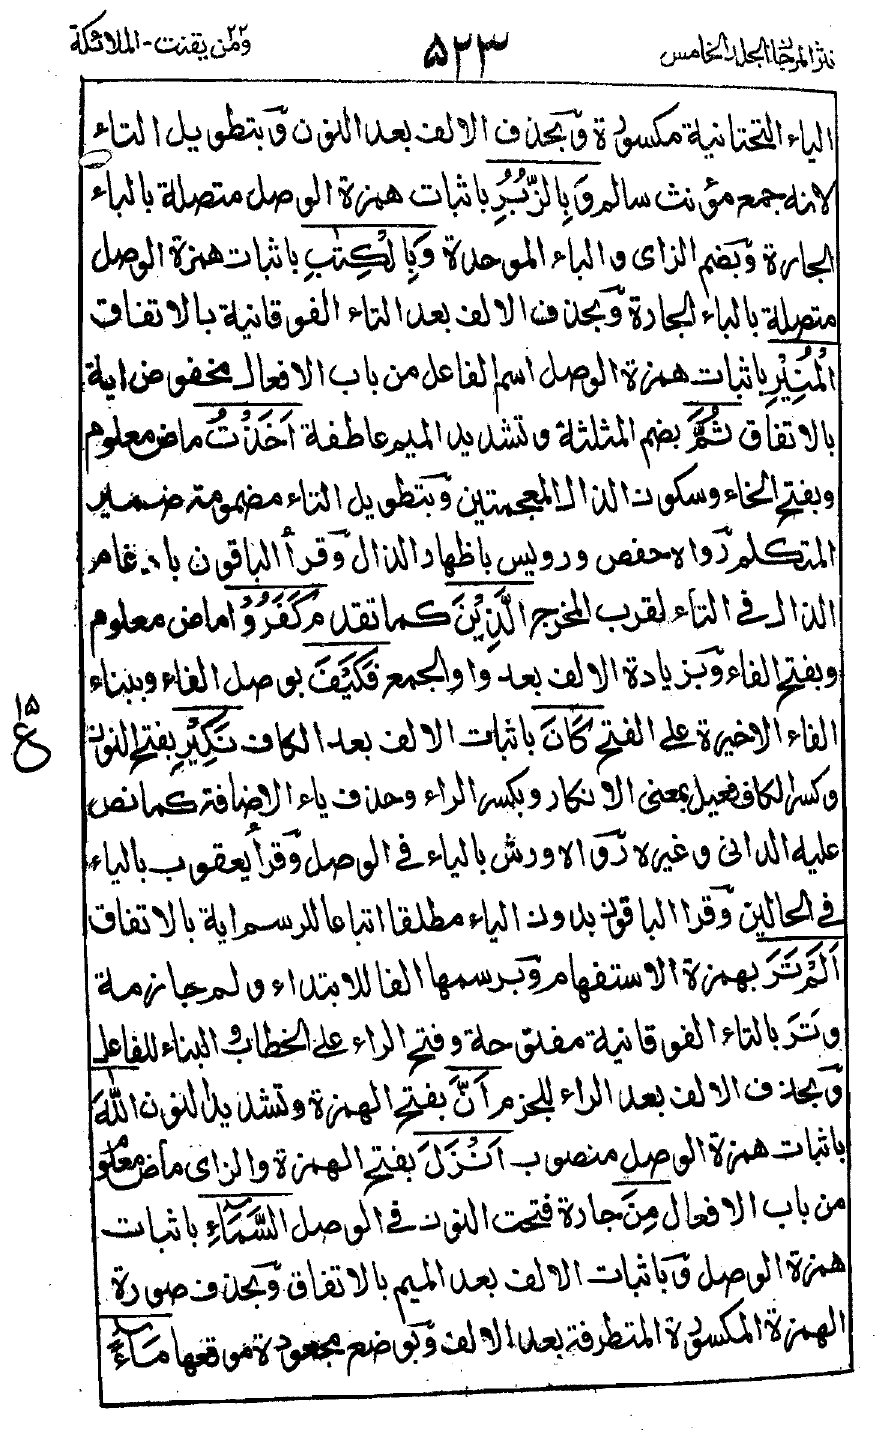 نثر المرجان الجلد الخامس
۵۲۳
ومن يقنت-٢٢ الملائكة
الياء التحتانية مكسورة وبحذف الالف بعد النون وبتطويل التاء
لانه جمع مؤنث سالم وَبِالزُّبُرِ باثبات همزة الوصل متصلة بالباء
الجارة وبضم الزاى والباء الموحدة وَبِالْكِتٰبِ باثبات همزة الوصل
متصلة بالباء الجارة وبحذف الالف بعد التاء الفوقانية بالاتفاق
الْمُنِيْرِ باثبات همزة الوصل اسم الفاعل من باب الافعال مخفوض اية
بالاتفاق ثُمَّ بضم المثلثة وتشديد الميم عاطفة اَخَذْتُ ماض معلوم
وبفتح الخاء وسكون الذال المعجمتين وبتطويل التاء مضمومة ضمير
المتكلم رواه حفص ورويس باظهار الذال وقرأ الباقون بادغام
الذال فى التاء لقرب المخرج الَّذِيْنَ كما تقدم كَفَرُوْا ماض معلوم
وبفتح الفاء وبزيادة الالف بعد واو الجمع فَكَيْفَ بوصل الفاء وببناء
الفاء الاخيرة على الفتح كَانَ باثبات الالف بعد الكاف نَكِيْرِ بفتح النون
وكسر الكاف فعيل بمعنى الانكار وبكسر الراء وحذف ياء الاضافة كما نص
عليه الدانى وغيره رواه ورش بالياء فى الوصل وقرأ يعقوب بالياء
فى الحالين وقرا الباقون بدون الياء مطلقا اتباعا للرسم اية بالاتفاق
اَلَمْ تَرَ بهمزة الاستفهام وبرسمها الفا للابتداء ولم جازمة
وتَرَ بالتاء الفوقانية مفتوحة وفتح الراء على الخطاب والبناء للفاعل
وبحذف الالف بعد الراء للجزم اَنَّ بفتح الهمزة وتشديد النون اللّٰهَ
باثبات همزة الوصل منصوب اَنْزَلَ بفتح الهمزة والزاى ماض معلوم
من باب الافعال مِنَ جارة فتحت النون فى الوصل السَّمَآءِ باثبات
همزة الوصل وباثبات الالف بعد الميم بالاتفاق وبحذف صورة
الهمزة المكسورة المتطرفة بعد الالف وبوضع مجعودة موقعها مَآءً
١۵
ع